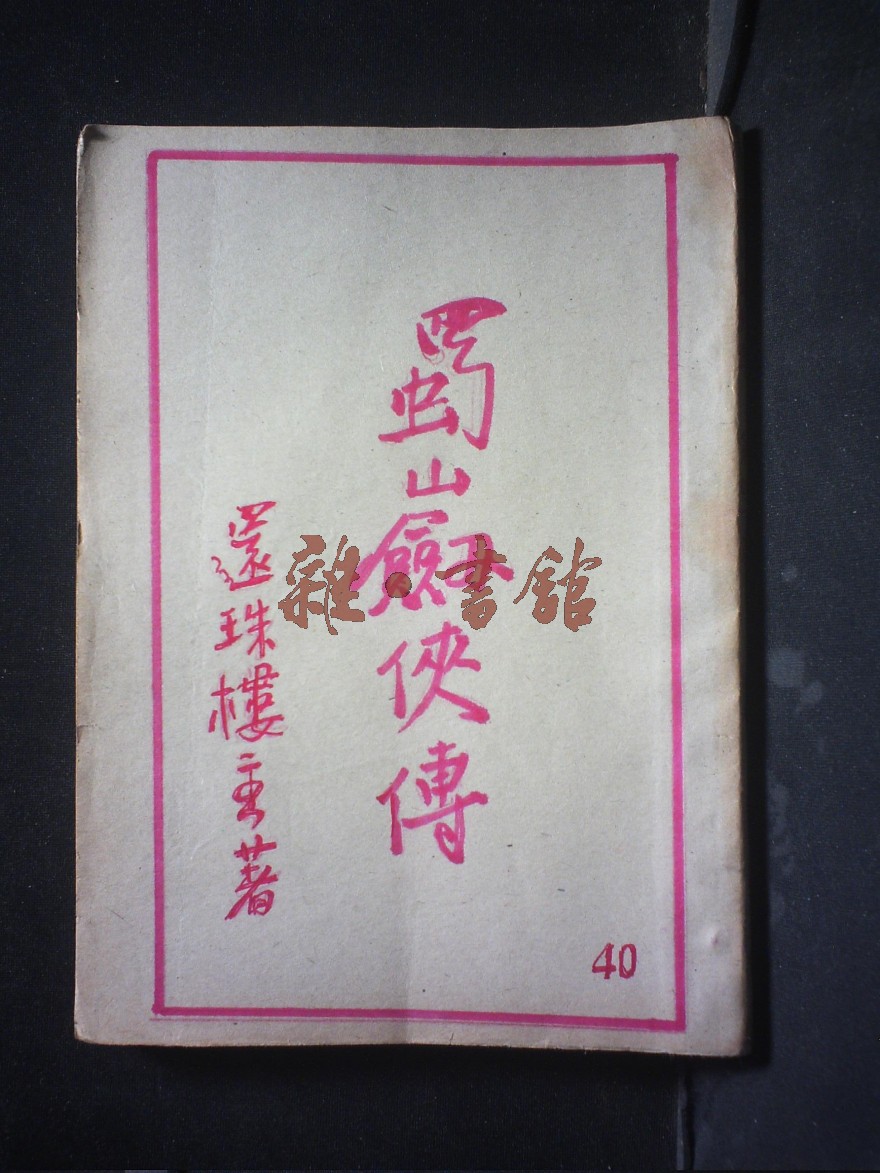 蜀山劍俠傳
還珠樓主著
40
雜·書館